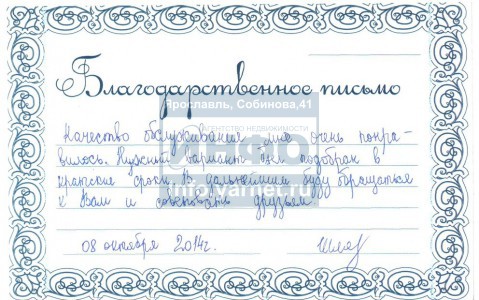 Благодарственное письмо
Ярославль, Собинова,41
АГЕНТСТВО НЕДВИЖИМОСТИ
ИНФО
info.varnet.ru
Качество обслуживания мне очень понра-
вилось. Нужный вариант был подобран в
краткие сроки. В дальнейшем буду обращаться
к Вам и советовать друзьям
08 октября 2014г.